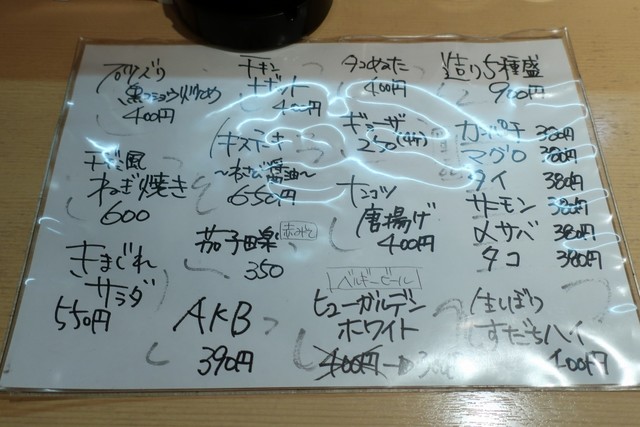 黒コショウ炒め
400円
チキン
ナゲット
400円
タコめった
400円
造り5種盛
900円
カンパチ 380円
マグロ 380円
タイ 380円
サーモン 380円
〆サバ 380円
タコ 380円
ギョーザ
250
ステーキ
〜わさび醤油〜
650円
風
ねぎ焼き
600
ナンコツ
唐揚げ
400円
茄子田楽
赤みそ
350
きまぐれ
サラダ
550円
AKB
390円
ベルギービール
ヒューガルデン
ホワイト
400円
生しぼり
すだちハイ
400円